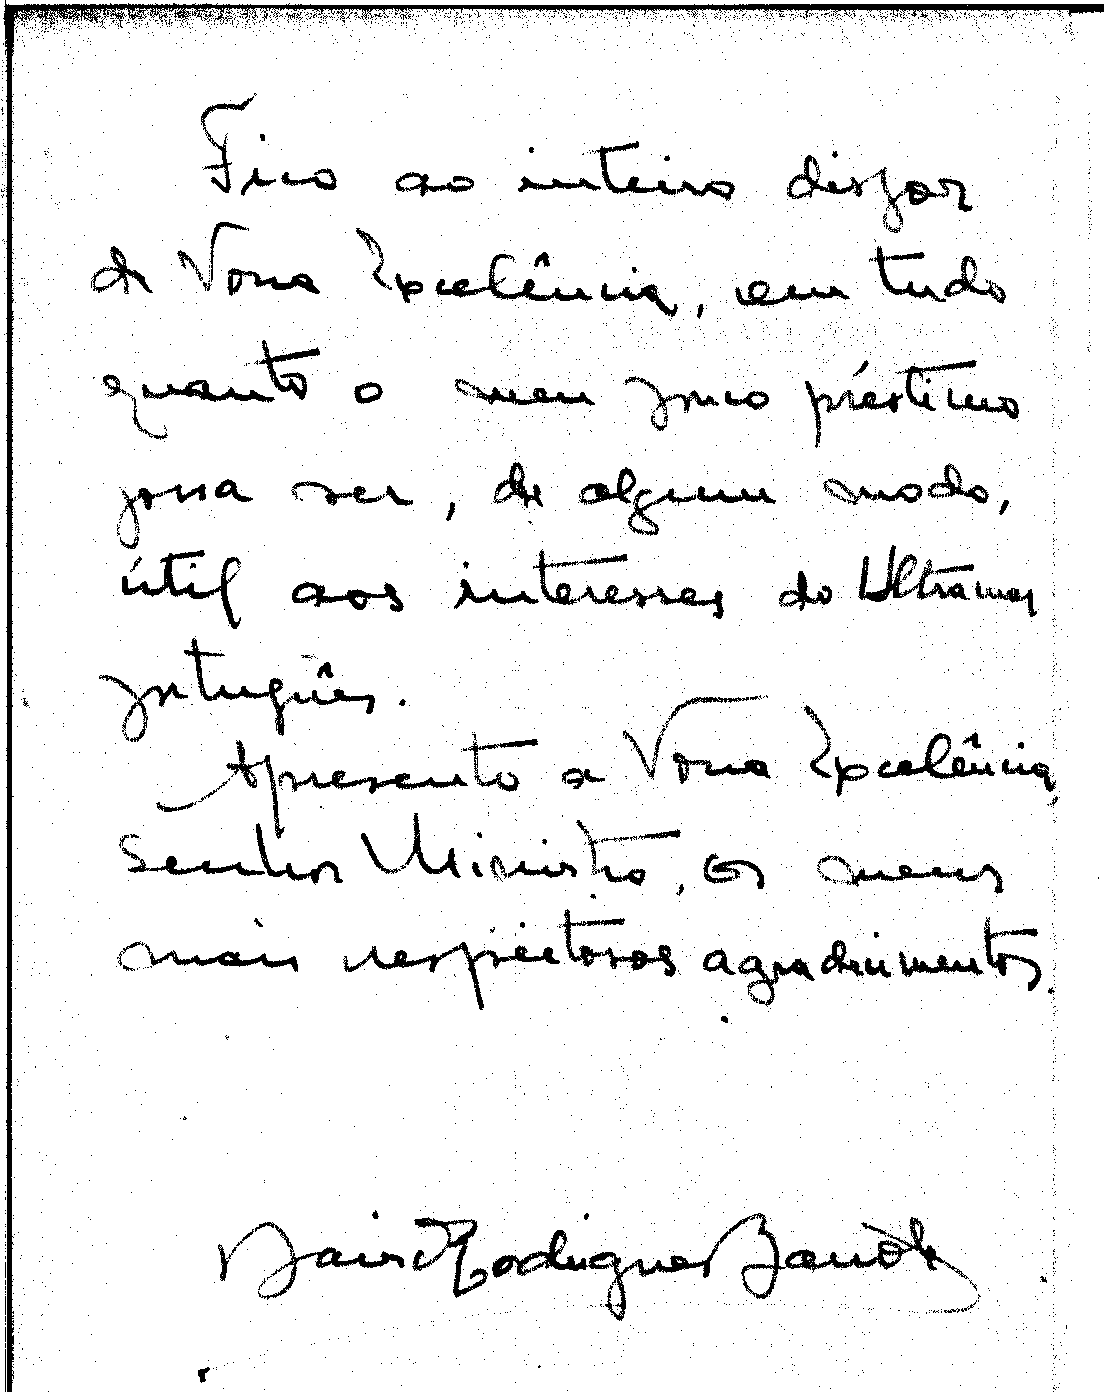 Fico ao inteiro dispor
de Vossa Excelência, em tudo
quanto o meu pouco préstimo
possa ser, de algum modo,
útil aos interesses do Ultramar
português.
Apresento a Vossa Excelência,
Senhor Ministro, os meus
mais respeitosos agradecimentos.
Rodrigues